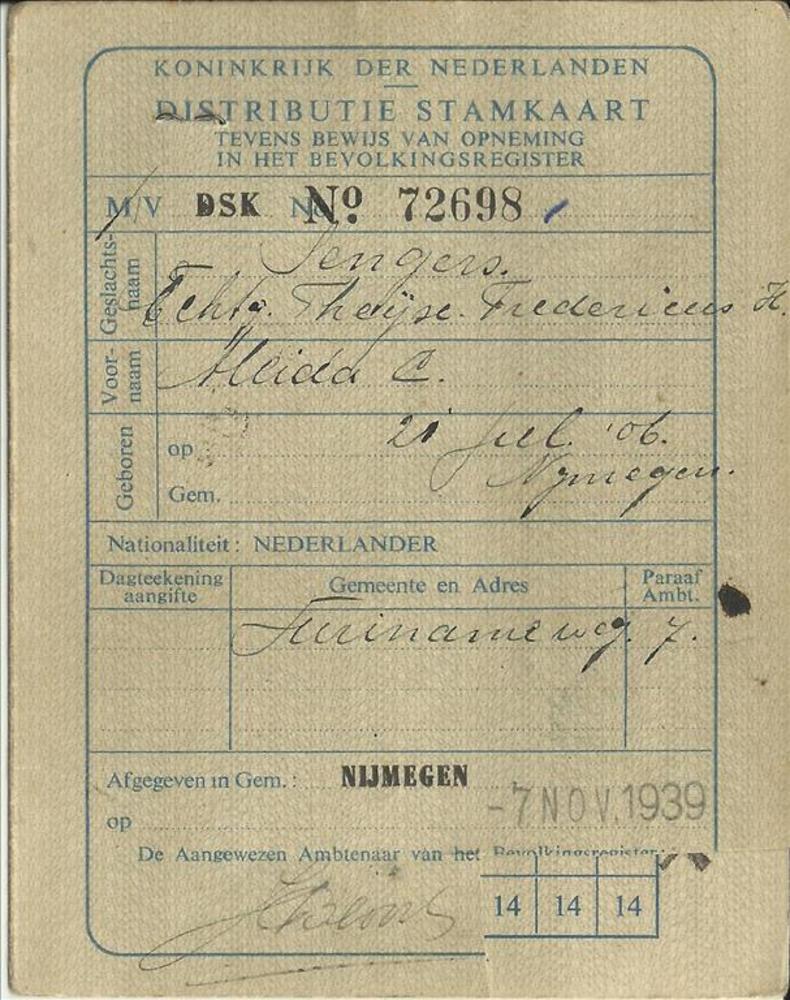 KONINKRIJK DER NEDERLANDEN
DISTRIBUTIE STAMKAART
TEVENS BEWIJS VAN OPNEMING
IN HET BEVOLKINGSREGISTER
M/V DSK No. Nº 72698
Geslachtsnaam
Jengers.
Echtg. Theijse. Fredericus H.
Voornaam
Aleida C.
Geboren
op 21 Jul. '06.
Gem. Nijmegen.
Nationaliteit: NEDERLANDER
Dagteekening aangifte
Gemeente en Adres
Paraaf Ambt.
Surinameweg. 7.
Afgegeven in Gem.: NIJMEGEN
op -7 NOV. 1939
De Aangewezen Ambtenaar van het Bevolkingsregister:
14 14 14